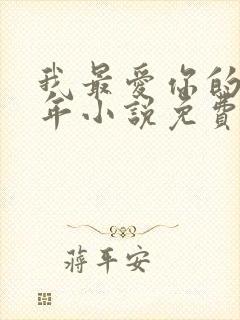 我最爱你的
年小說免費
蒋平安